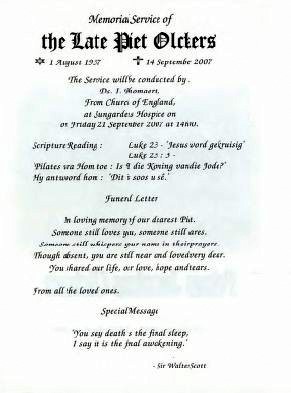 Memorial Service of
the Late Piet Olckers
1 August 1937 14 September 2007
The Service will be conducted by.
From Church of England,
at Sungardens Hospice on
on Friday 21 September 2007 at 14h00.
Scripture Reading : Luke 23 - 'Jesus word gekruisig'
Luke 23 : 3 -
'Pilates vra Hom toe : Is U die Koning van die Jode?'
Hy antwoord hom : 'Dit is soos u sê.'
Funeral Letter
In loving memory of our dearest Piet.
Someone still loves you, someone still cares.
Someone still whispers your name in their prayers.
Though absent, you are still near and loved very dear.
You shared our life, our love, hope and tears.
From all the loved ones.
Special Message
'You say death is the final sleep,
I say it is the final awakening.'
- Sir Walter Scott